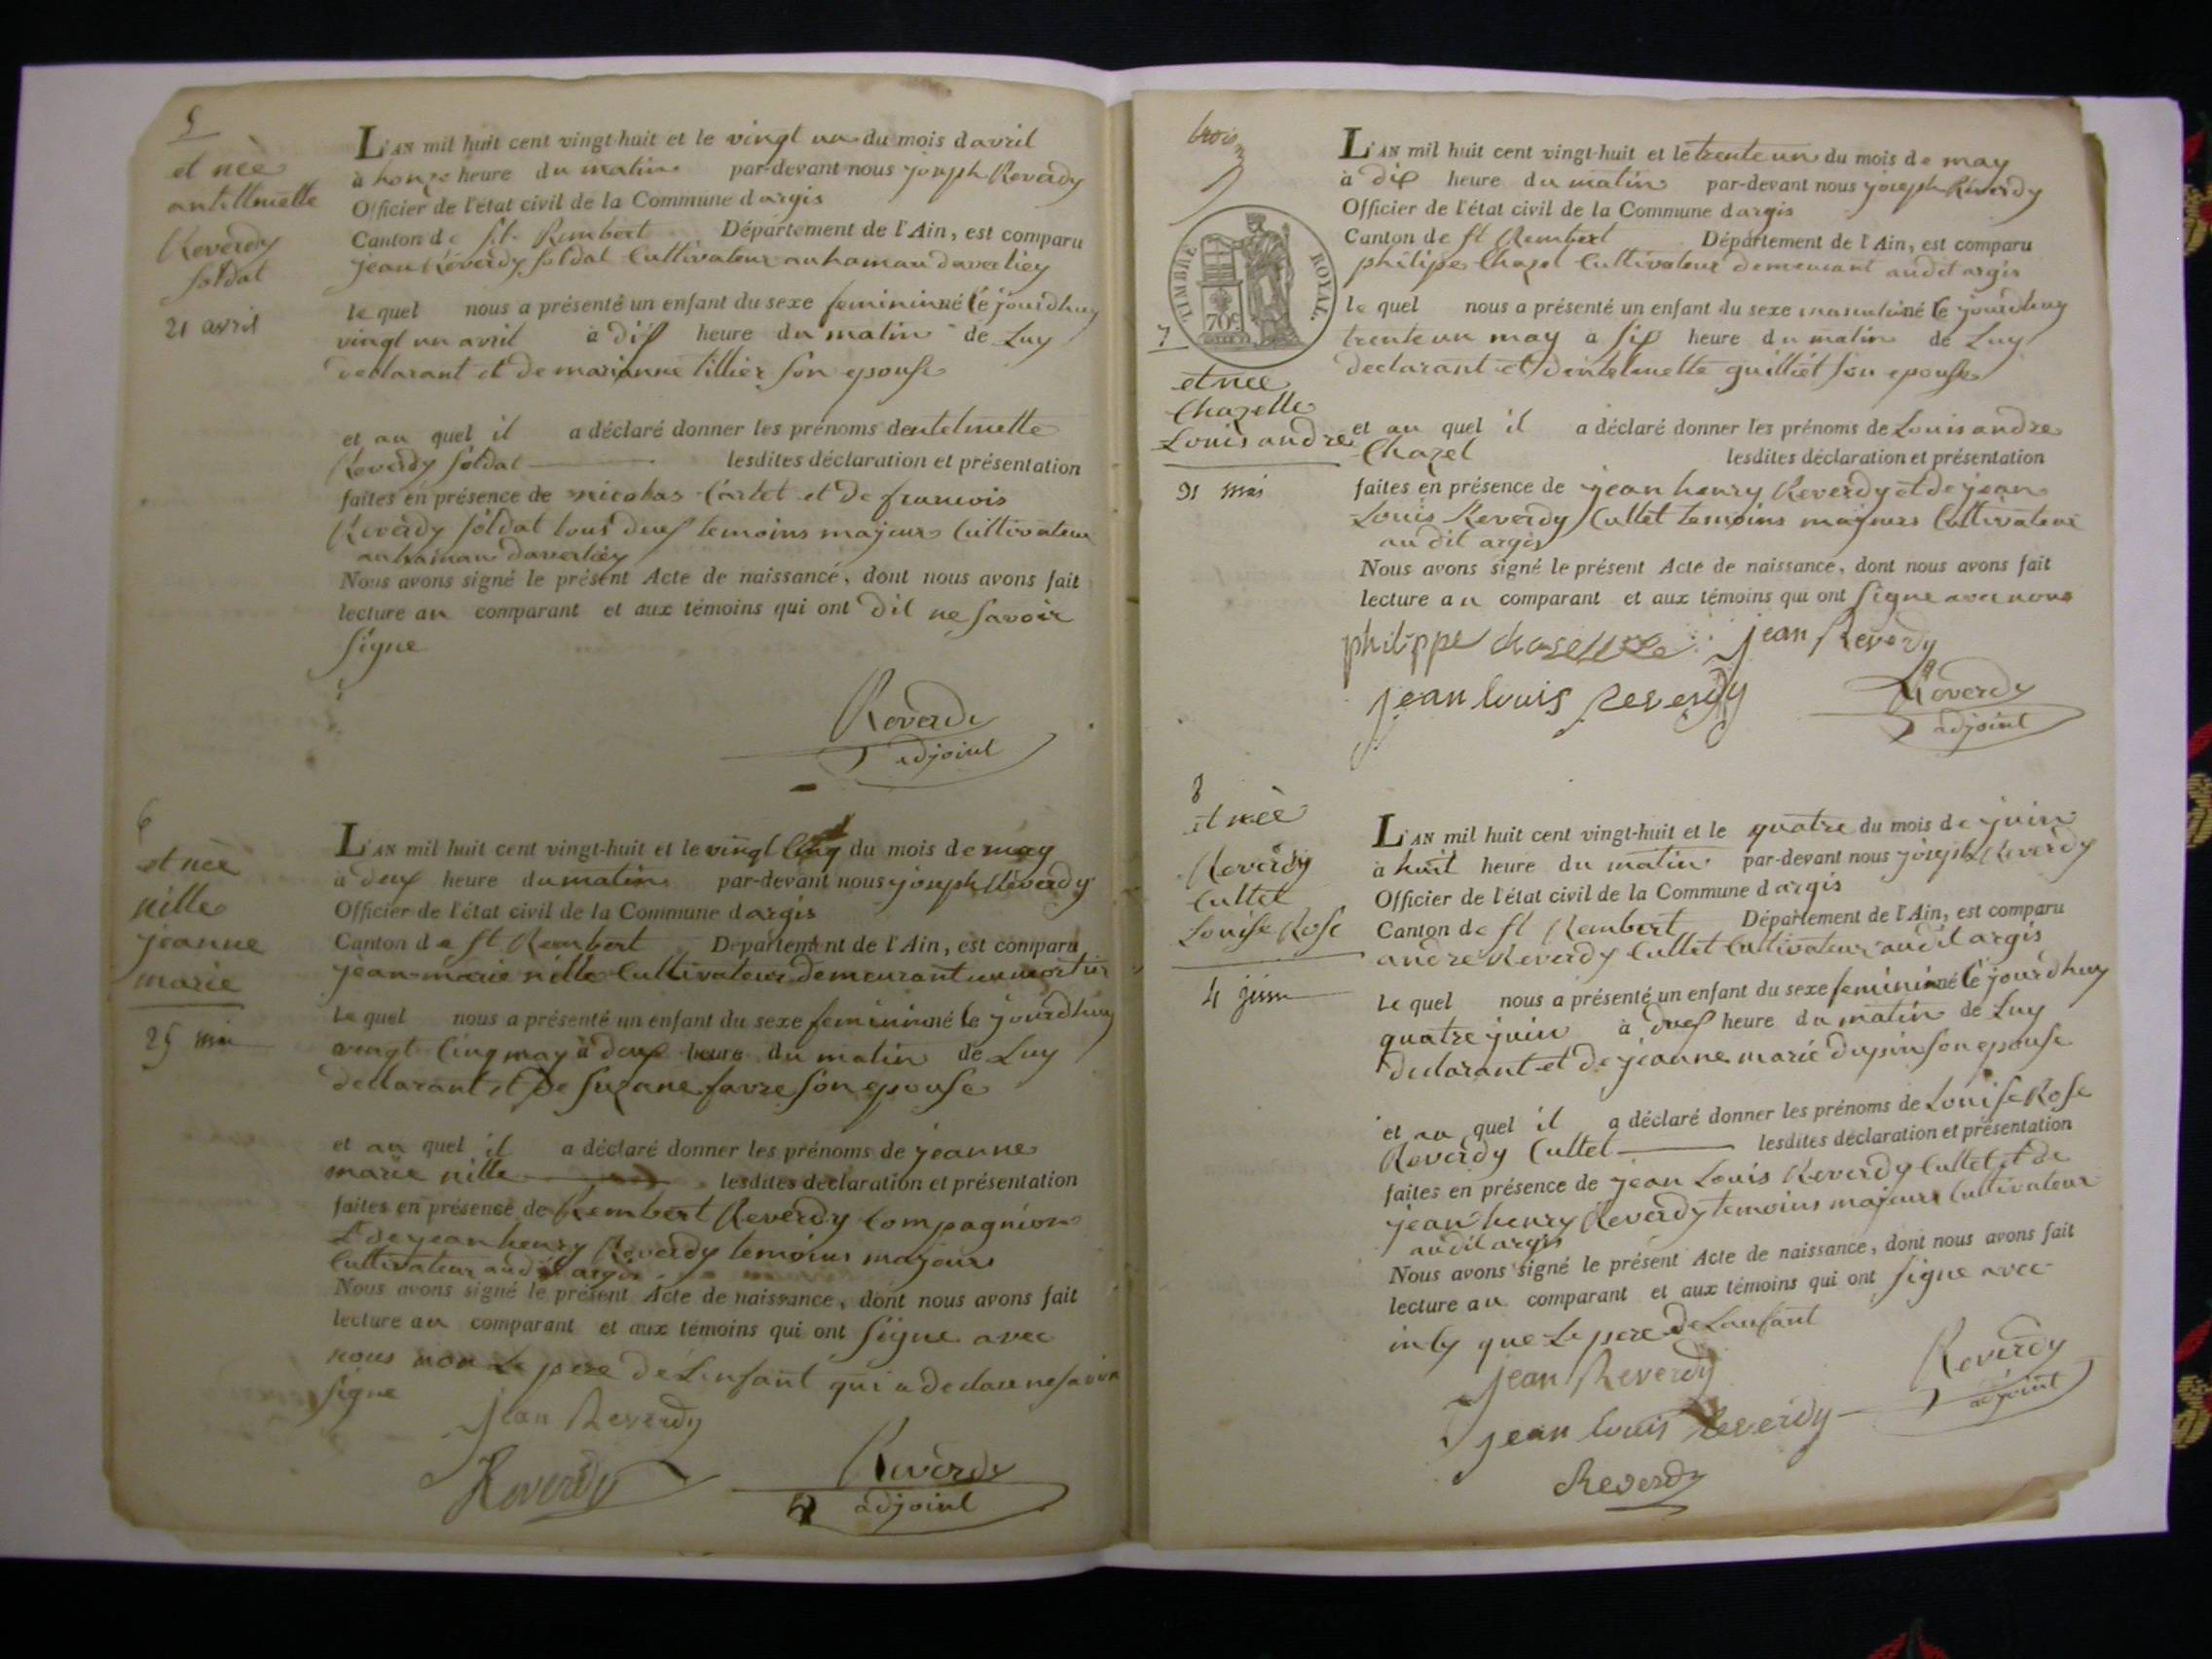 5
et née
antelmette
Reverdy
soldat
21 avril
L'AN mil huit cent vingt-huit et le vingt un du mois davril
à honze heure du matin par-devant nous joseph Reverdy
Officier de l'état civil de la Commune dargis
Canton de st. Rembert Département de l'Ain, est comparu
jean Reverdy soldat Cultivateur au hamau daverliey
le quel nous a présenté un enfant du sexe femininné le jourdhuy
vingt un avril à dix heure du matin de Luy
declarant et de marianne tillier son epouse
et au quel il a déclaré donner les prénoms dentelmette
Reverdy soldat lesdites déclaration et présentation
faites en présence de nicolas Cartet et de francois
Reverdy soldat tous deux temoins majeurs Cultivateur
au hamau daverliey
Nous avons signé le présent Acte de naissance, dont nous avons fait
lecture au comparant et aux témoins qui ont dit ne savoir
signe
Reverdy
adjoint
6
et née
nille
jeanne
marie
25 mai
L'AN mil huit cent vingt-huit et le vingt Cinq du mois de may
à deux heure du matin par-devant nous joseph Reverdy
Officier de l'état civil de la Commune dargis
Canton de st Rembert Département de l'Ain, est comparu
jean-marie nille Cultivateur demeurant
le quel nous a présenté un enfant du sexe femininné le jourdhuy
vingt Cinq may à deux heure du matin de Luy
declarant et de suzane favre son epouse
et au quel il a déclaré donner les prénoms de jeanne
marie nille lesdites déclaration et présentation
faites en présence de Rembert Reverdy Compagnion
et de jean henry Reverdy temoins majeurs
Cultivateur audit argis
Nous avons signé le présent Acte de naissance, dont nous avons fait
lecture au comparant et aux témoins qui ont signe avec
nous non Le pere de Lenfant qui a declare ne savoir
signe
jean Reverdy
Reverdy
Reverdy
adjoint
trois
TIMBRE ROYAL.
70c
7
et nee
Chazelle
Louis andre
31 mai
L'AN mil huit cent vingt-huit et le trente un du mois de may
à dix heure du matin par-devant nous joseph Reverdy
Officier de l'état civil de la Commune dargis
Canton de st Rembert Département de l'Ain, est comparu
philipe Chazel Cultivateur demeurant audit argis
le quel nous a présenté un enfant du sexe masculinné le jourdhuy
trente un may à six heure du matin de Luy
declarant et dentelmette guilliet son epouse
et au quel il a déclaré donner les prénoms de Louis andre
Chazel lesdites déclaration et présentation
faites en présence de jean henry Reverdy et de jean
Louis Reverdy Cultet temoins majeurs Cultivateur
au dit argis
Nous avons signé le présent Acte de naissance, dont nous avons fait
lecture au comparant et aux témoins qui ont signe avec nous
philippe jean Reverdy
jean louis reverdy
Reverdy
adjoint
8
et née
Reverdy
Cultet
Louise Rose
4 juin
L'AN mil huit cent vingt-huit et le quatre du mois de juin
à huit heure du matin par-devant nous joseph Reverdy
Officier de l'état civil de la Commune dargis
Canton de st Rembert Département de l'Ain, est comparu
andre Reverdy Cultet Cultivateur audit argis
Le quel nous a présenté un enfant du sexe femininné le jourdhuy
quatre juin à deux heure du matin de Luy
declarant et de jeanne marie dupin son epouse
et au quel il a déclaré donner les prénoms de Louise Rose
Reverdy Cultet lesdites déclaration et présentation
faites en présence de jean Louis Reverdy Cultet et de
jean henry Reverdy temoins majeurs Cultivateur
audit argis
Nous avons signé le présent Acte de naissance, dont nous avons fait
lecture au comparant et aux témoins qui ont signe avec
que Le pere de Lanfant
jean Reverdy
jean louis reverdy
Reverdy
adjoint
Reverdy